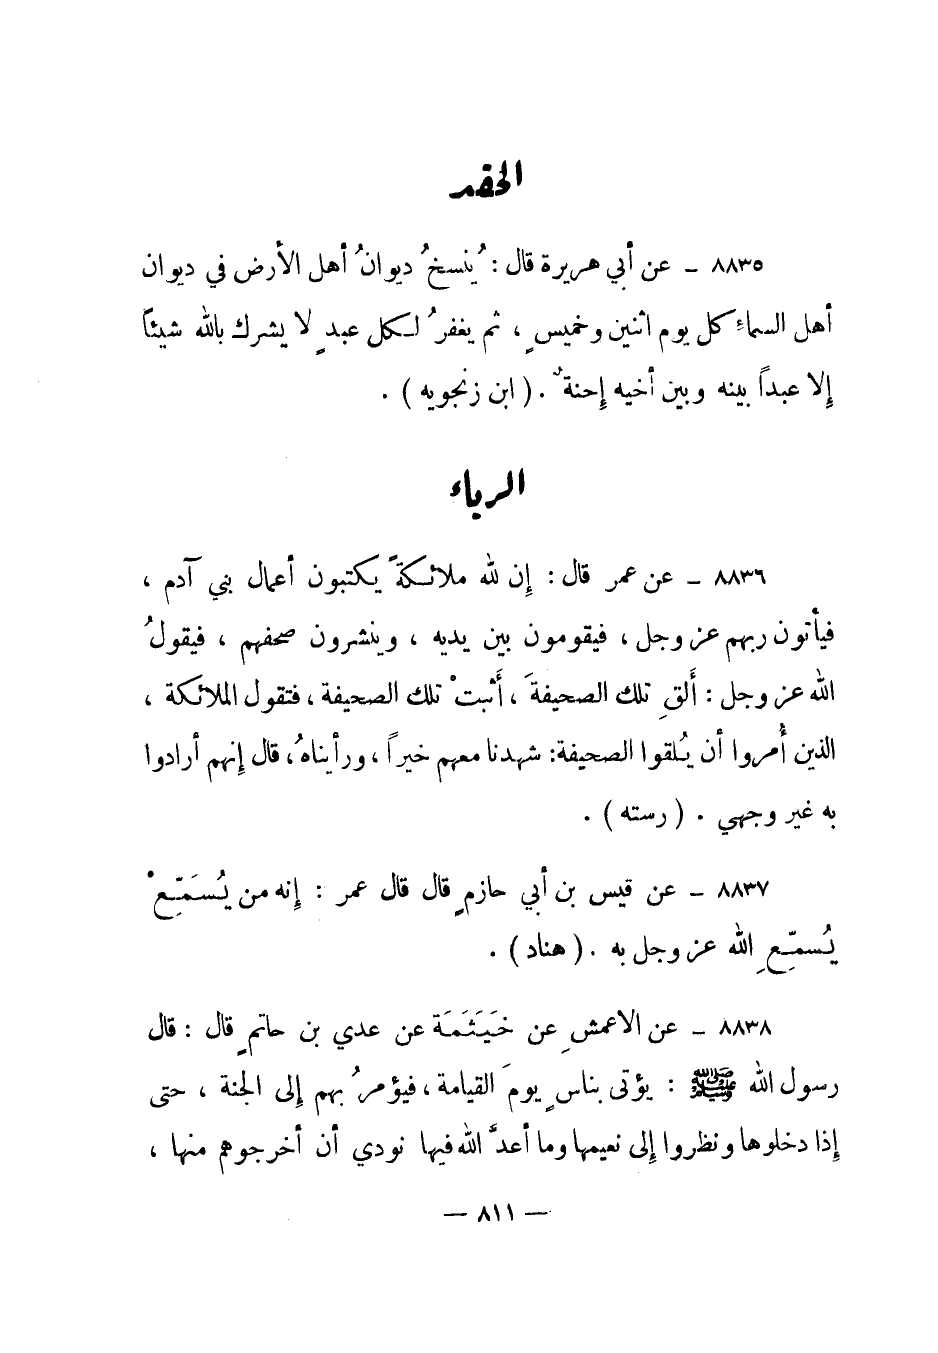 الحقد
٨٨٣٥ - عن أبي هريرة قال : يُنسخُ ديوانُ أهل الأرض في ديوان
أهل السماءِ كل يوم اثنين وخميسٍ ، ثم يغفرُ لكل عبدٍ لا يشرك بالله شيئاً
إلا عبداً بينه وبين أخيه إحنةٌ . ( ابن زنجويه ) .
الرياء
٨٨٣٦ - عن عمر قال : إن لله ملائكةً يكتبون أعمال بني آدم ،
فيأتون ربهم عز وجل ، فيقومون بين يديه ، وينشرون صحفهم ، فيقولُ
الله عز وجل : أَلقِ تلك الصحيفةَ ، أَثبتْ تلك الصحيفة ، فتقول الملائكة ،
الذين أُمروا أن يُلقوا الصحيفة : شهدنا معهم خيراً ، ورأيناهُ ، قال إنهم أرادوا
به غير وجهي . ( رسته ) .
٨٨٣٧ - عن قيس بن أبي حازمٍ قال قال عمر : إنه من يُسَمِّعْ
يُسمِّعِ الله عز وجل به . ( هناد ) .
٨٨٣٨ - عن الاعمشِ عن خَيَثَمَة عن عدي بن حاتمٍ قال : قال
رسول الله ﷺ : يؤتى بناسٍ يومَ القيامة ، فيؤمرُ بهم إلى الجنة ، حتى
إذا دخلوها ونظروا إلى نعيمها وما أعدَّ الله فيها نودي أن أخرجوهم منها ،
— ٨١١ —